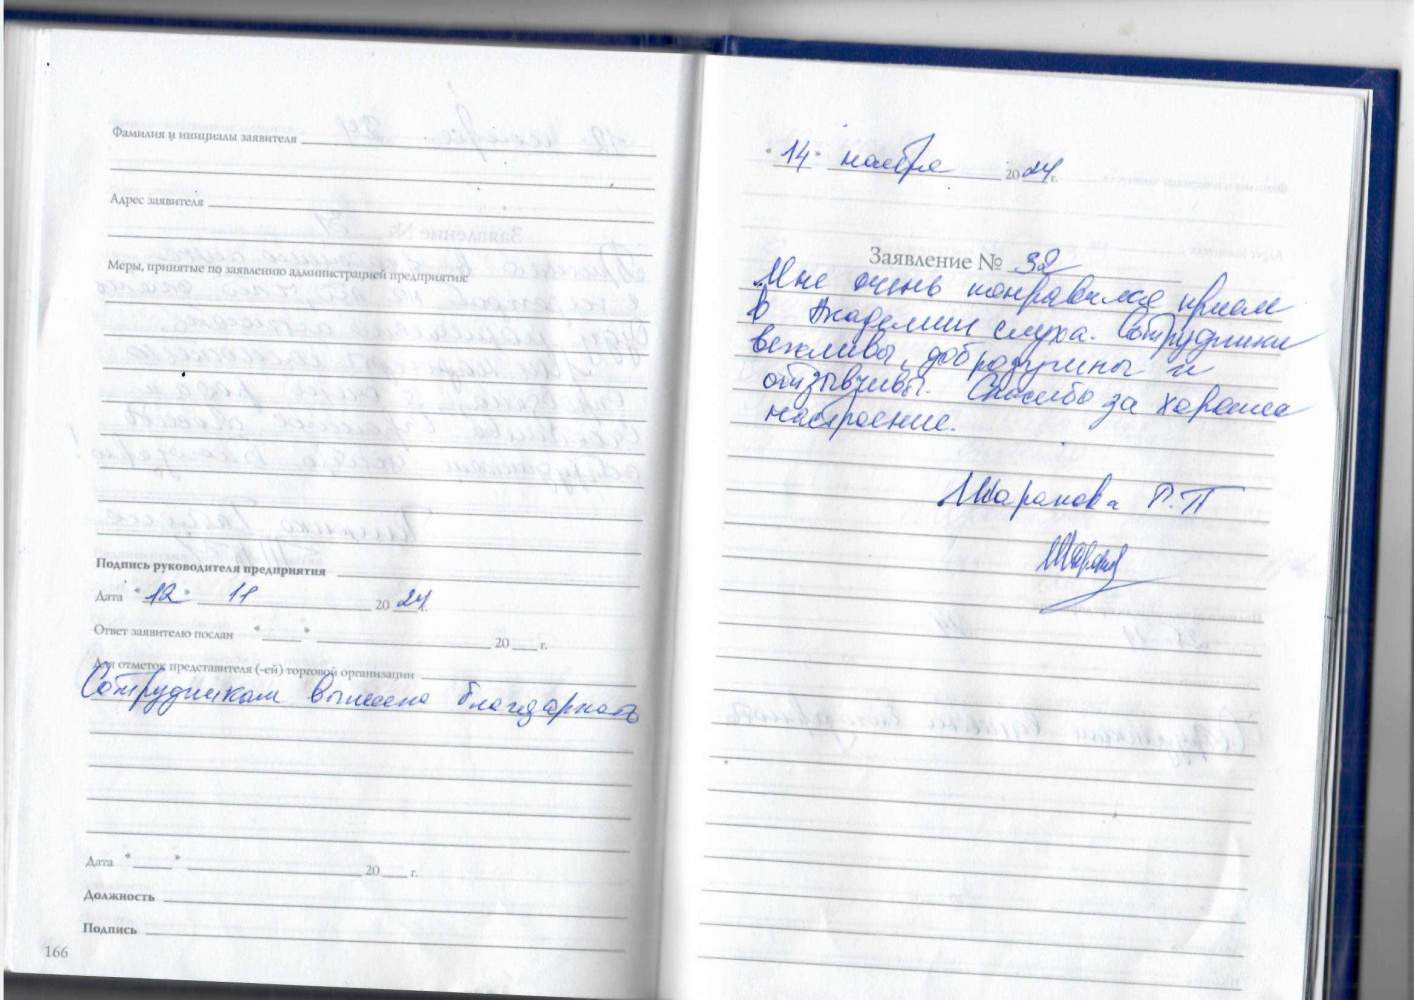 Фамилия и инициалы заявителя
Адрес заявителя
Меры, принятые по заявлению администрацией предприятия:
Подпись руководителя предприятия
Дата "12" 11 2024 г.
Ответ заявителю послан " " 20 г.
Для отметок представителя (-ей) торговой организации
Сотрудникам вынесена благодарность
Дата " " 20 г.
Должность
Подпись
166
"14" ноября 2024 г.
Заявление № 32
Мне очень понравился прием
в Академии слуха. Сотрудники
вежливы, добродушны и
отзывчивы. Спасибо за хорошее
настроение.
Шаронова Р.П